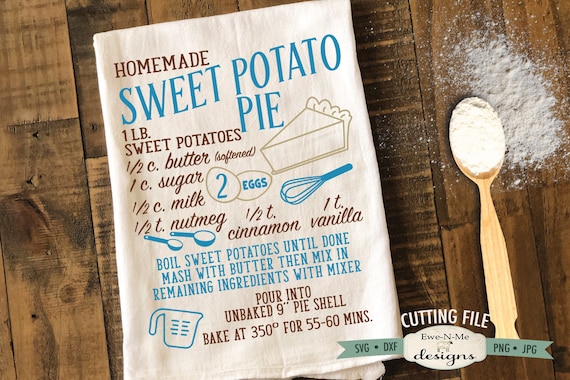 HOMEMADE
SWEET POTATO
PIE
1 LB.
SWEET POTATOES
1/2 c. butter (softened)
1 c. sugar
2 EGGS
1/2 c. milk
1/2 t. nutmeg
1/2 t. cinnamon
1 t. vanilla
BOIL SWEET POTATOES UNTIL DONE
MASH WITH BUTTER THEN MIX IN
REMAINING INGREDIENTS WITH MIXER
POUR INTO
UNBAKED 9" PIE SHELL
BAKE AT 350° FOR 55-60 MINS.
CUTTING FILE
SVG • DXF
Ewe-N-Me
designs
PNG • JPG